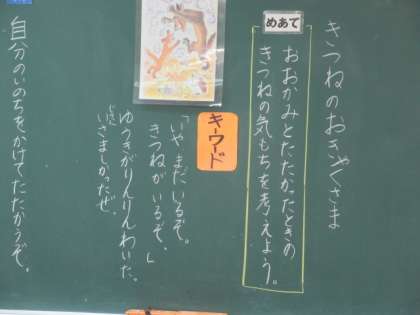 きつねのおきゃくさま
めあて
おおかみとたたかったときの
きつねの気もちを考えよう。
キーワード
「いやまだいるぞ。
きつねがいるぞ。」
ゆうきがりんりんわいた。
いさましかったぜ。
自分のいのちをかけてたたかうぞ。